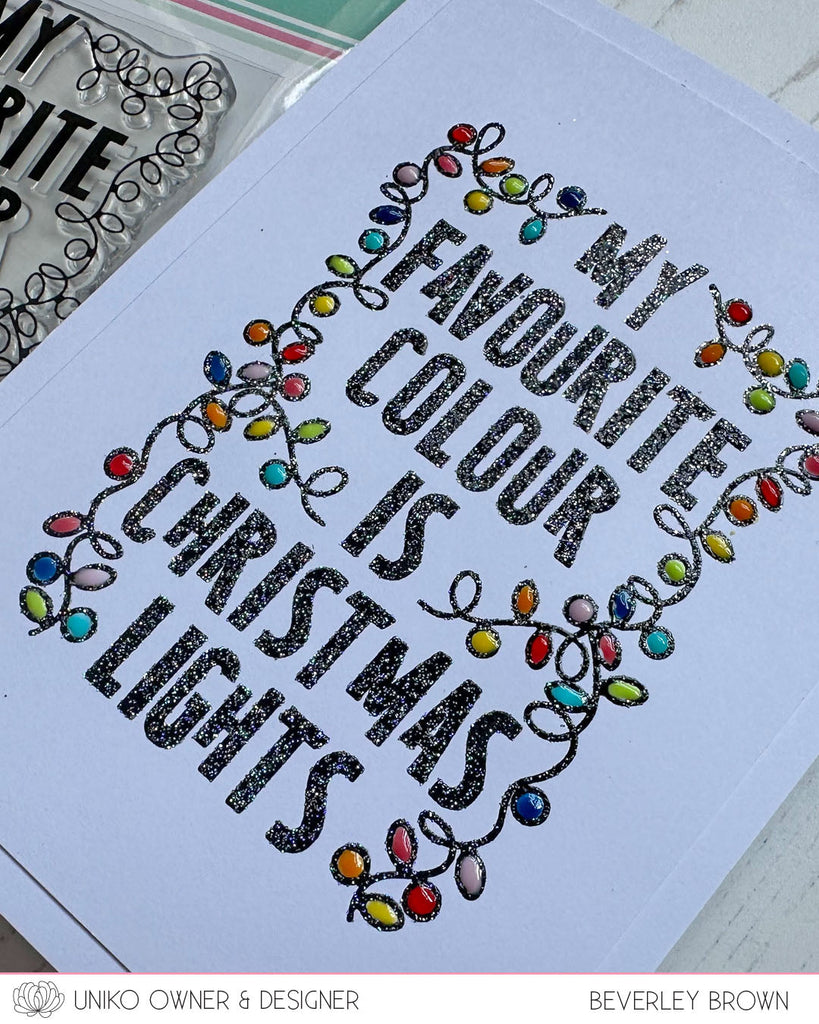 MY
RITE
MY
FAVOURITE
COLOUR
IS
CHRISTMAS
LIGHTS
UNIKO OWNER & DESIGNER
BEVERLEY BROWN